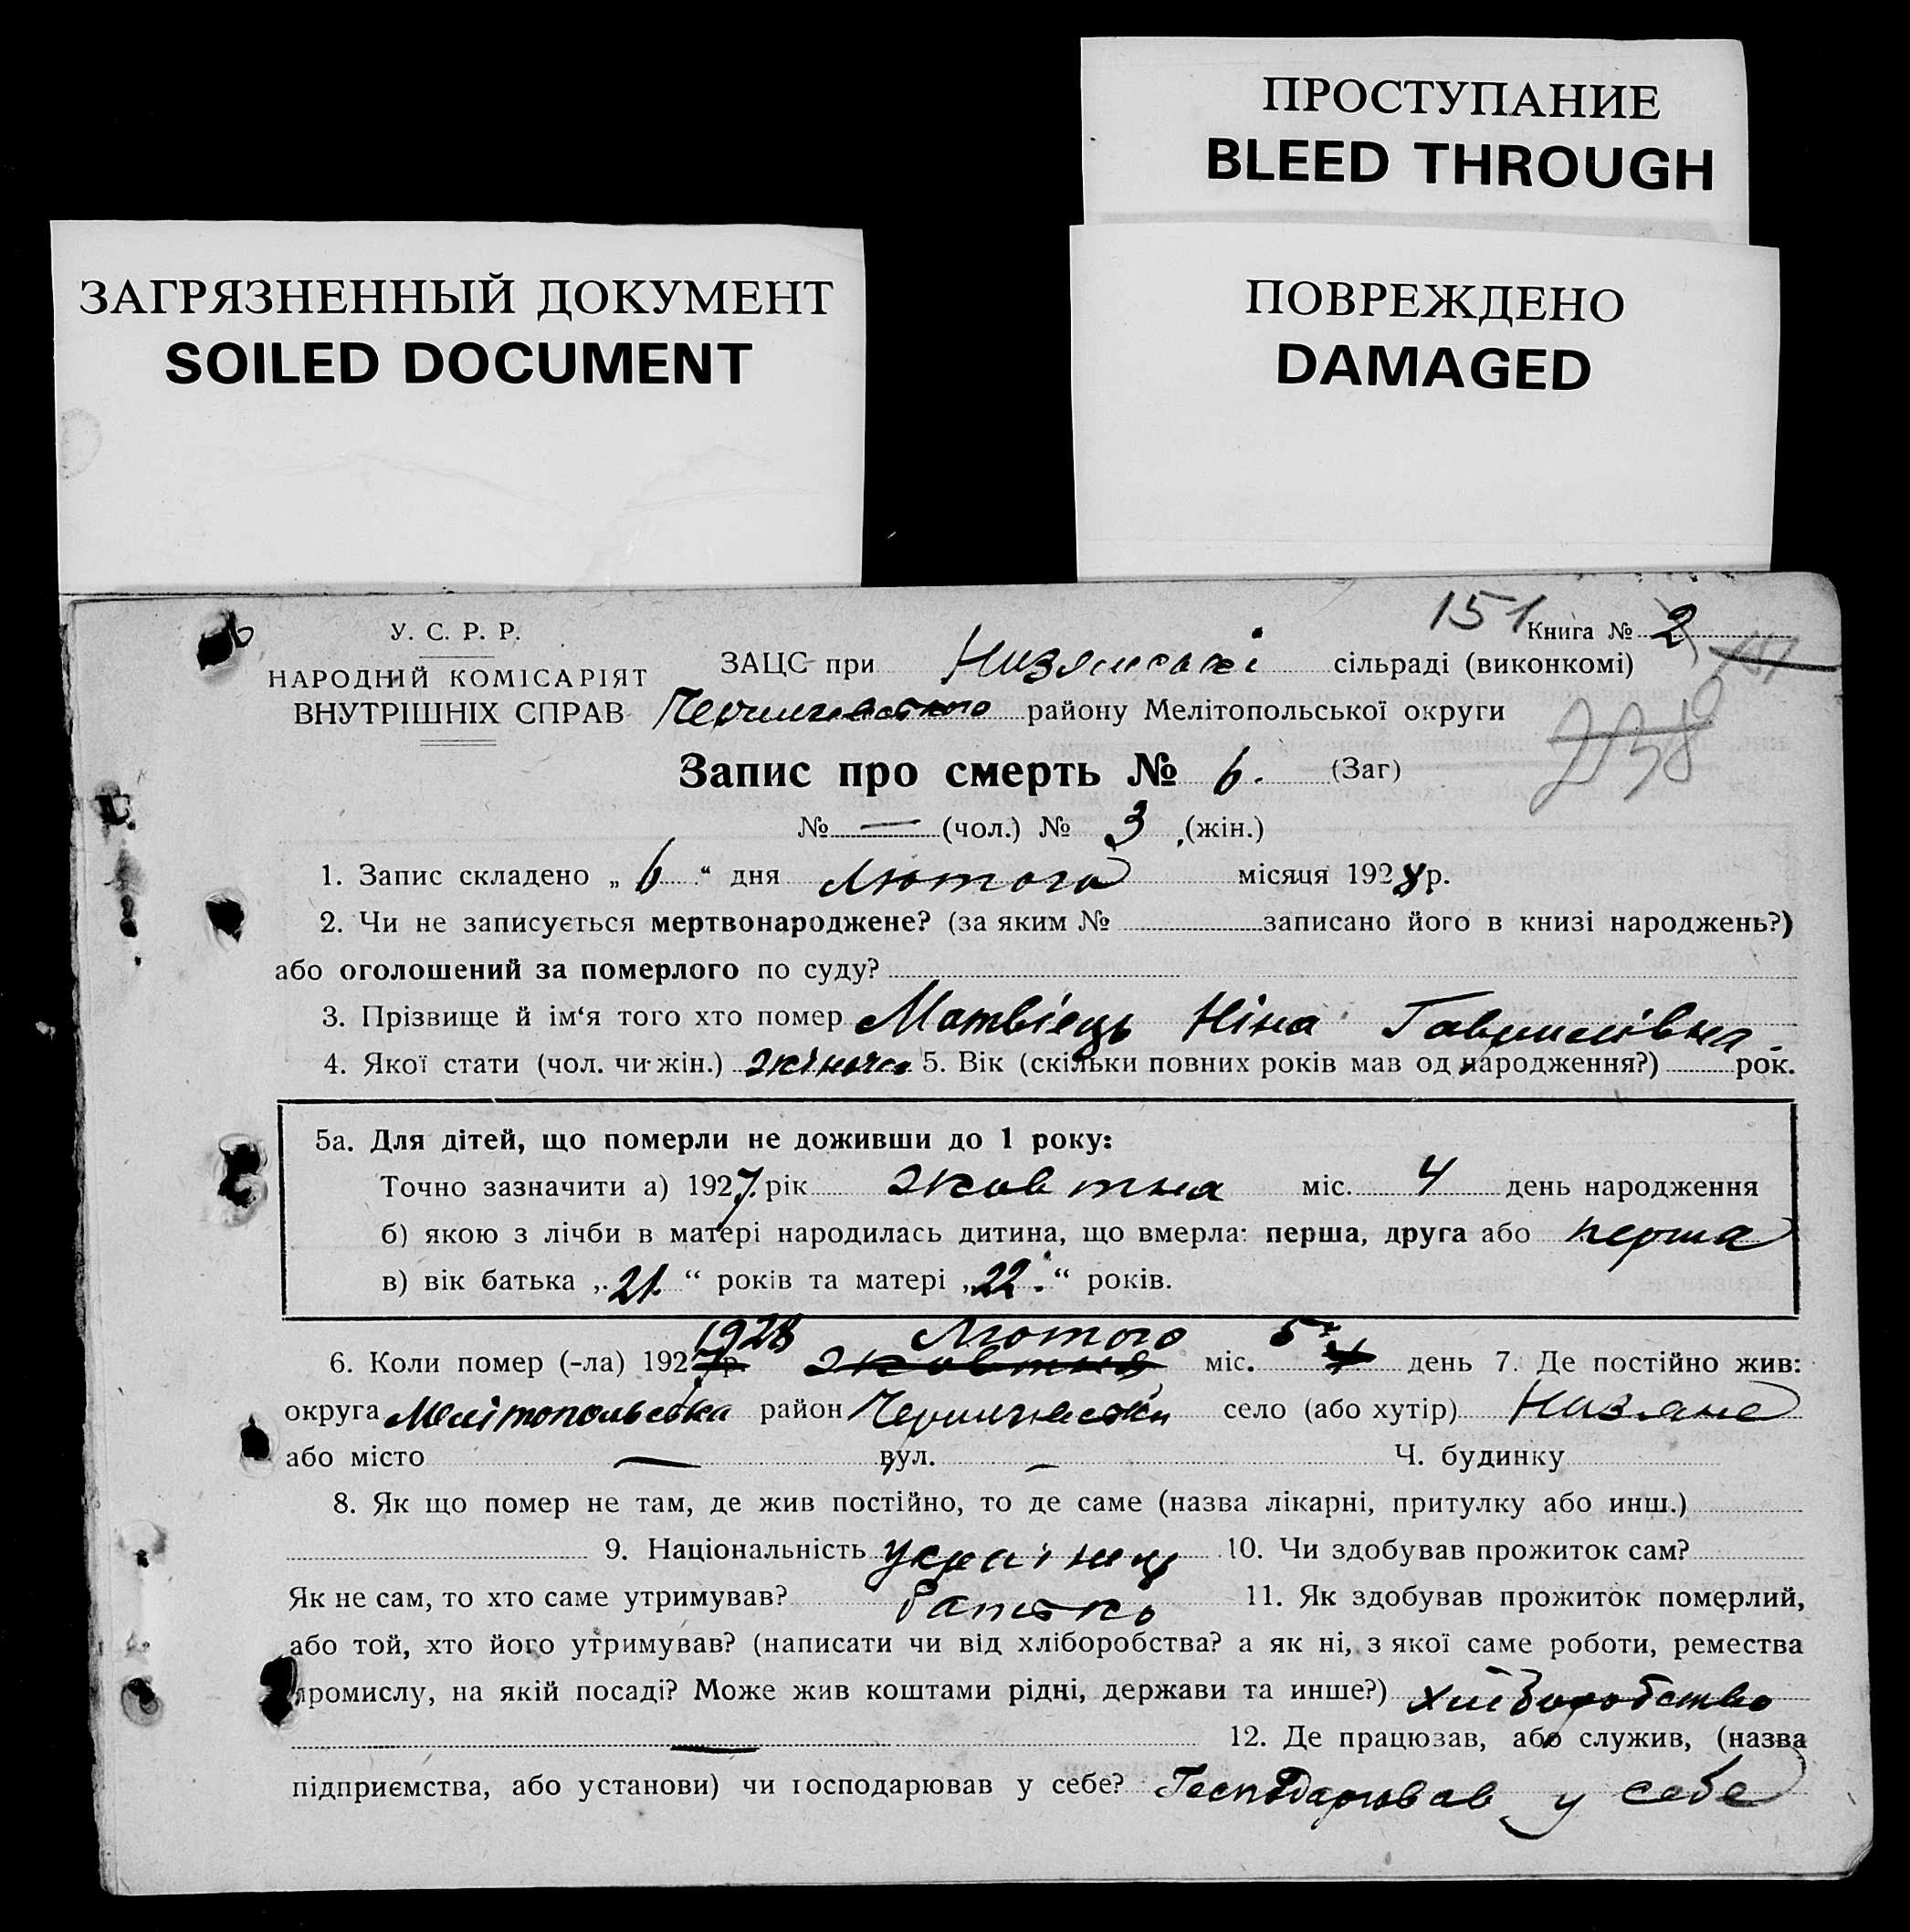 ПРОСТУПАНИЕ
BLEED THROUGH
ЗАГРЯЗНЕННЫЙ ДОКУМЕНТ
SOILED DOCUMENT
ПОВРЕЖДЕНО
DAMAGED
151
У. С. Р. Р.
НАРОДНІЙ КОМІСАРІЯТ
ВНУТРІШНІХ СПРАВ
Книга № 2
ЗАЦС при Низянські сільраді (виконкомі)
району Мелітопольської округи
238
Запис про смерть № 6. (Заг)
№ — (чол.) № 3 (жін.)
1. Запис складено „ 6 “ дня Лютого місяця 1928 р.
2. Чи не записується мертвонароджене? (за яким № записано його в книзі народжень?)
або оголошений за померлого по суду?
3. Прізвище й ім‘я того хто помер Матвієць Ніна Гаврилівна
4. Якої статі (чол. чи жін.) жіноча 5. Вік (скільки повних років мав од народження?) рок.
5а. Для дітей, що померли не доживши до 1 року:
Точно зазначити а) 1927 рік Жовтня міс. 4 день народження
б) якою з лічби в матері народилась дитина, що вмерла: перша, друга або перша
в) вік батька „ 21. “ років та матері „ 22. “ років.
1928 Лютого 5
6. Коли помер (-ла) 1927 р. Жовтня міс. 4 день 7. Де постійно жив:
округа Мелітопольська район село (або хутір) Низяне
або місто — вул. — Ч. будинку
8. Як що помер не там, де жив постійно, то де саме (назва лікарні, притулку або инш.)
9. Національність українц 10. Чи здобував прожиток сам?
Як не сам, то хто саме утримував? батько 11. Як здобував прожиток померлий,
або той, хто його утримував? (написати чи від хліборобства? а як ні, з якої саме роботи, ремества
промислу, на якій посаді? Може жив коштами рідні, держави та инше?) хліборобство
— 12. Де працював, або служив, (назва
підприємства, або установи) чи господарював у себе? Господарював у себе